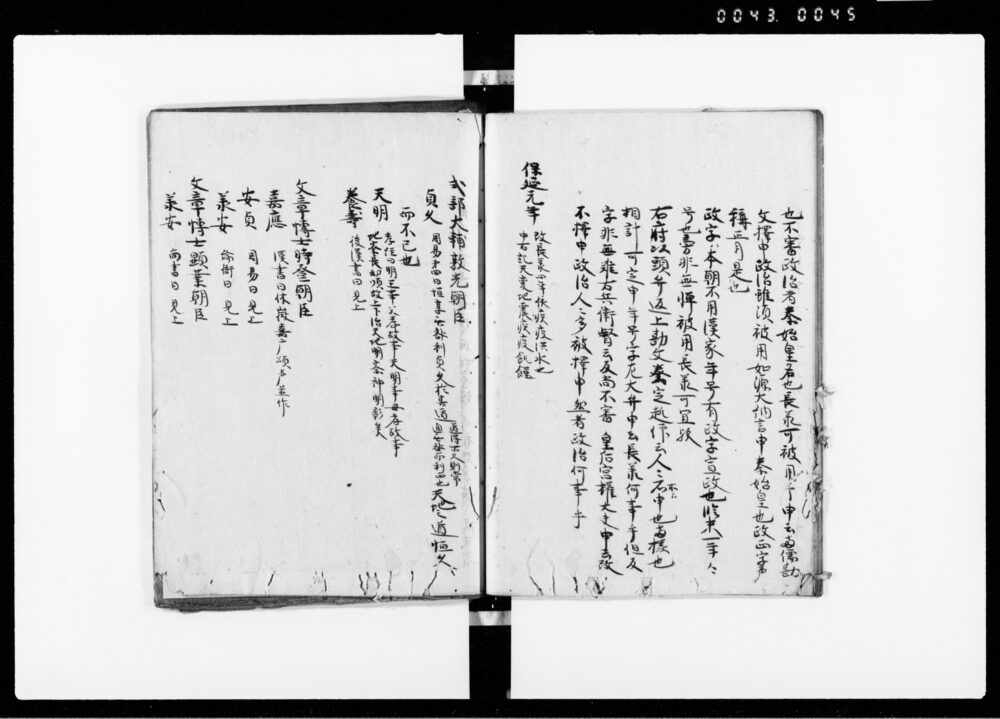 0043. 0045
也不審政治者秦始皇君也長承可被用之由云々儒勘
文擇申政治雖須被用如源大納言申秦始皇也改正字事
稱正月是也
政字ハ本朝不用漢家年号有政字宣政也
号也旁非無憚被用長承可宜歟
右府以頭弁返上勘文奏定趣作云人々不申也
相計可定申年号字左大弁申云長承何事乎但及
字非無難右兵衛督云及尚不審 皇后宮權大夫申云政
不擇申政治人々多被擇申然者政治何事乎
保延元年 改長承四年依疾疫洪水也
中右記天変地震疾疫飢饉
式部大輔敦光朝臣
貞久 周易曰恒亨无咎利貞久於其道 天地之道恒久
而不已也
天明 孝經曰明王事父孝故事天明事母孝故事
地察長幼順故上下治天地明察神明彰矣
養壽 後漢書曰見上
文章博士時登朝臣
嘉應 漢書曰休徵嘉應頌声並作
安貞 周易曰見上
承安 論衡曰見上
文章博士顕業朝臣
承安 尚書曰見上